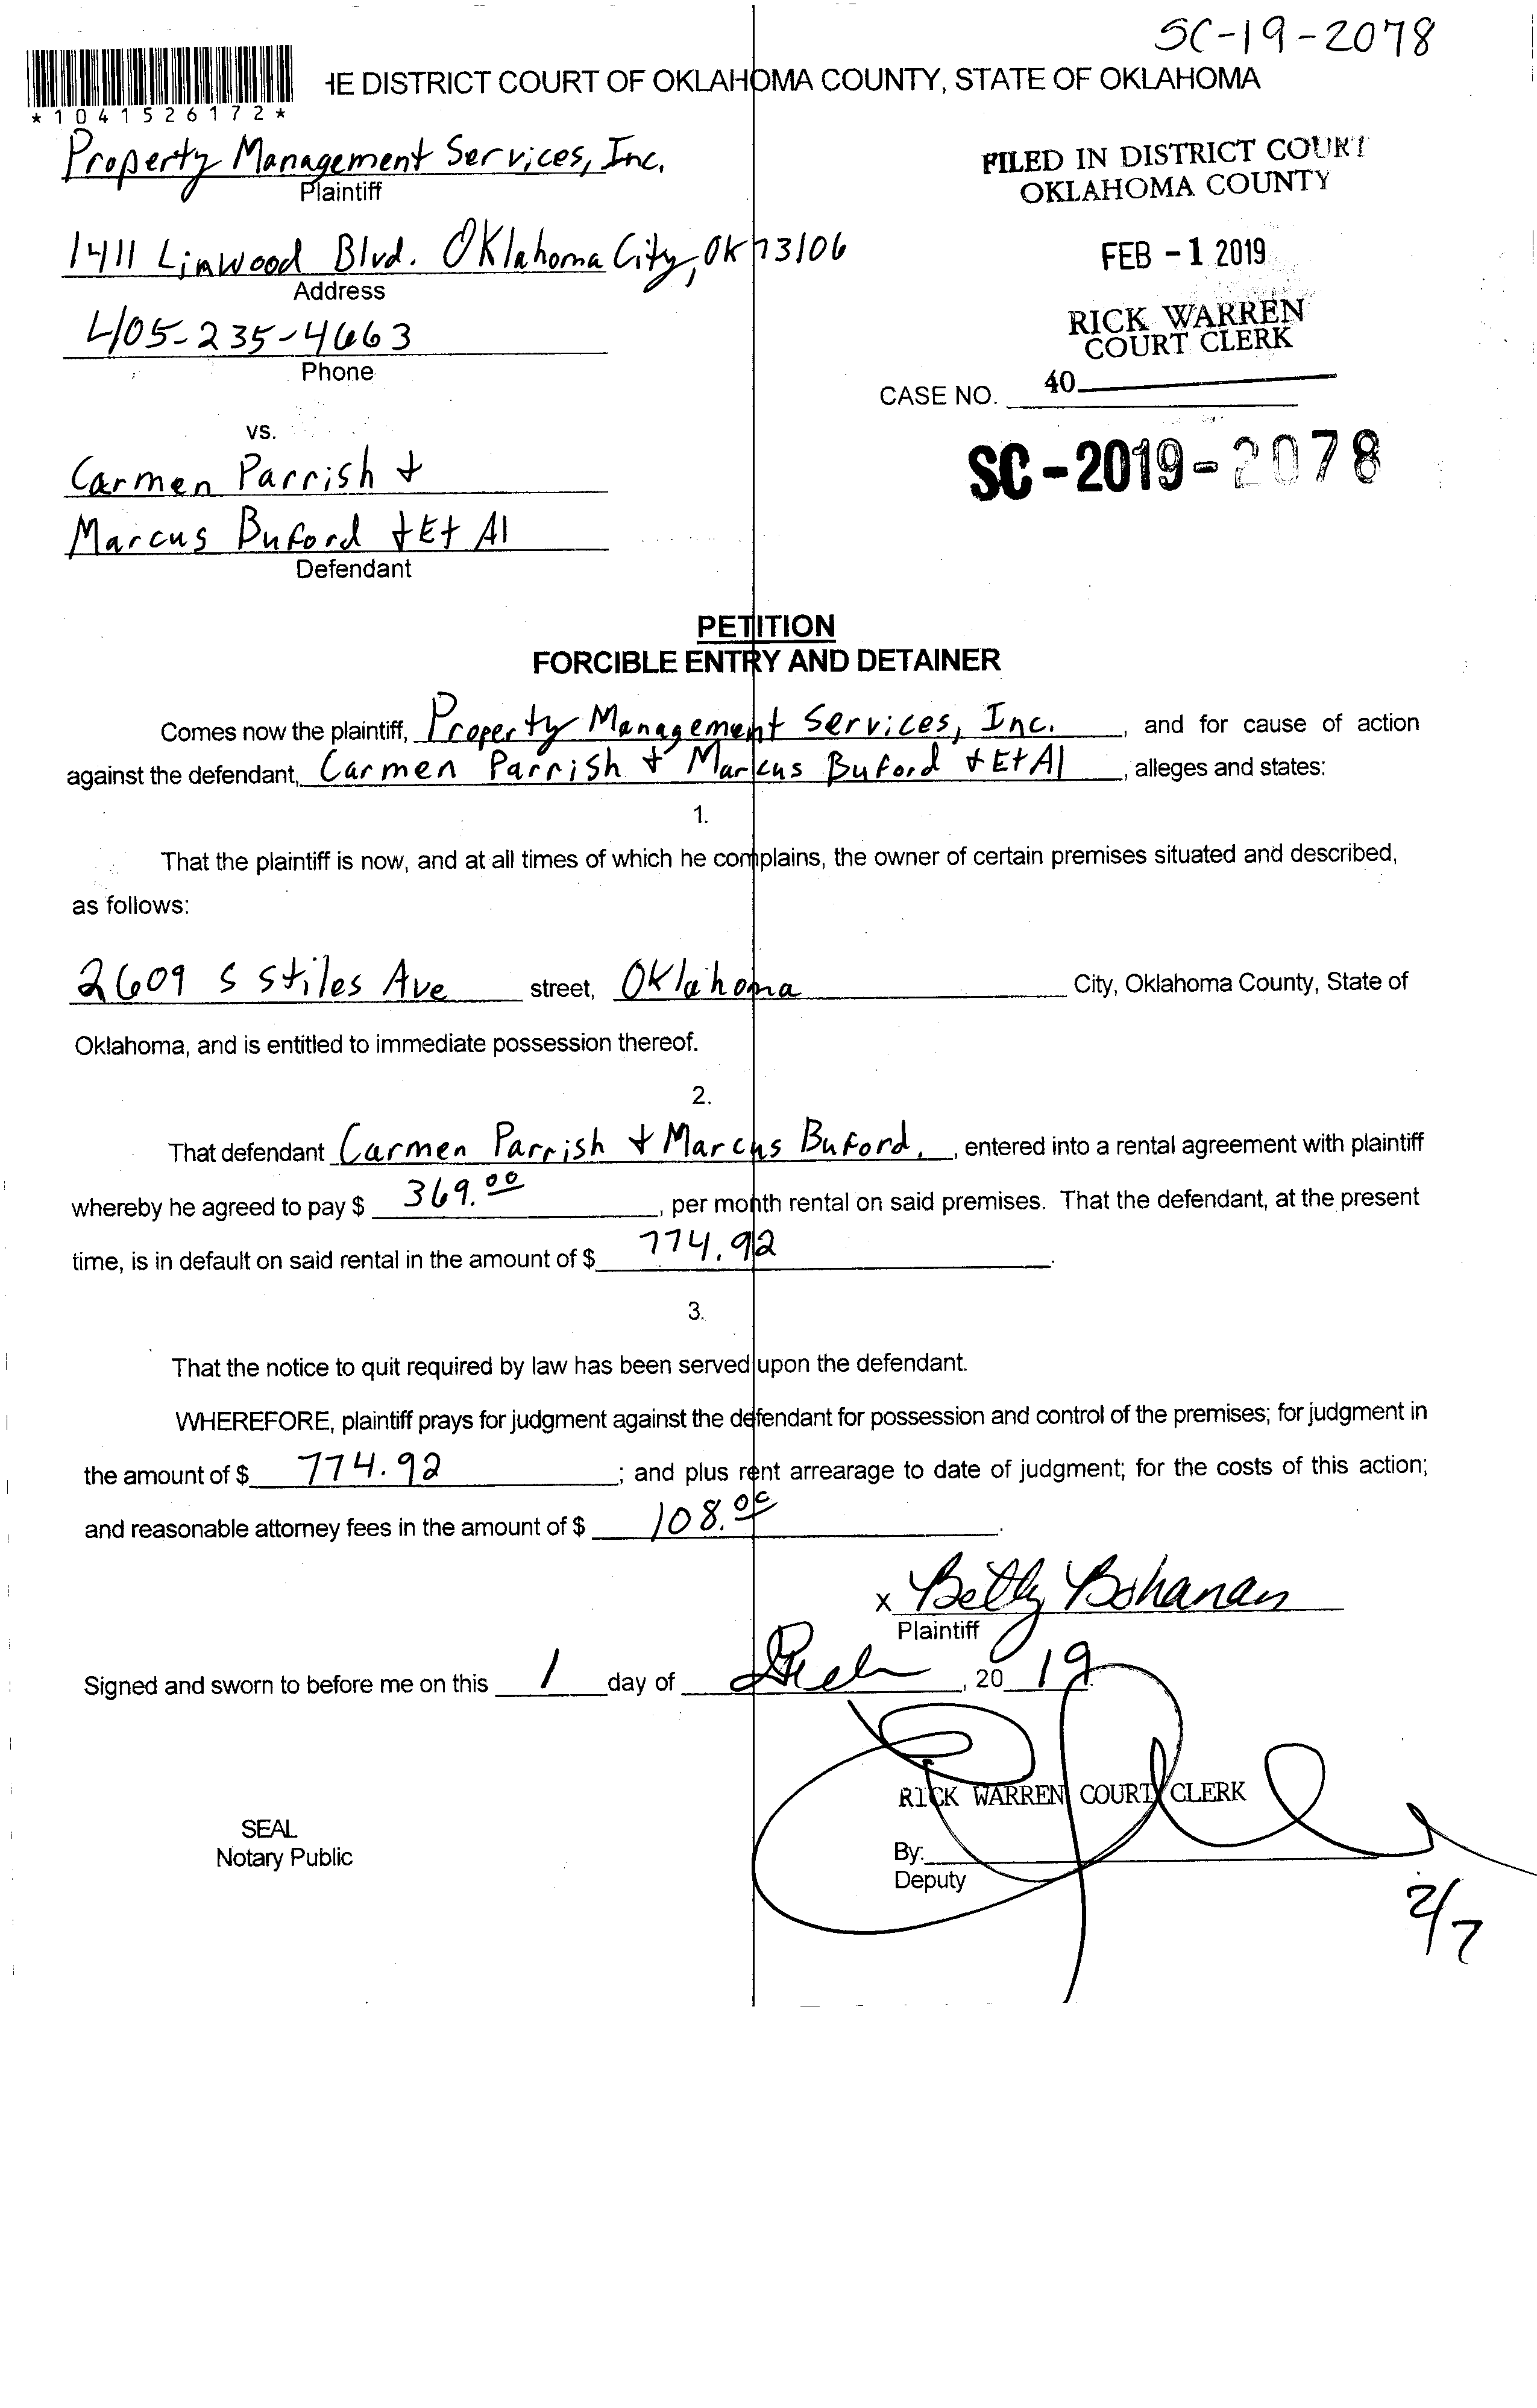 SC-19-2078
HE DISTRICT COURT OF OKLAHOMA COUNTY, STATE OF OKLAHOMA
*1041526172*
Property Management Services, Inc.
Plaintiff
FILED IN DISTRICT COURT
OKLAHOMA COUNTY
1411 Linwood Blvd. Oklahoma City, OK 73106
Address
FEB -1 2019
405-235-4663
Phone
RICK WARREN
COURT CLERK
CASE NO. 40
vs.
SC-2019-2078
Carmen Parrish +
Marcus Buford + Et Al
Defendant
PETITION
FORCIBLE ENTRY AND DETAINER
Comes now the plaintiff, Property Management Services, Inc. , and for cause of action
against the defendant, Carmen Parrish + Marcus Buford + Et Al , alleges and states:
1.
That the plaintiff is now, and at all times of which he complains, the owner of certain premises situated and described,
as follows:
2609 S Stiles Ave street, Oklahoma City, Oklahoma County, State of
Oklahoma, and is entitled to immediate possession thereof.
2.
That defendant Carmen Parrish + Marcus Buford. , entered into a rental agreement with plaintiff
whereby he agreed to pay $ 369.00 , per month rental on said premises. That the defendant, at the present
time, is in default on said rental in the amount of $ 774.92 .
3.
That the notice to quit required by law has been served upon the defendant.
WHEREFORE, plaintiff prays for judgment against the defendant for possession and control of the premises; for judgment in
the amount of $ 774.92 ; and plus rent arrearage to date of judgment; for the costs of this action;
and reasonable attorney fees in the amount of $ 108.00 .
x Betty Bohanan
Plaintiff
Signed and sworn to before me on this 1 day of Feb , 20 19.
RICK WARREN COURT CLERK
SEAL
Notary Public
By:
Deputy
2/7